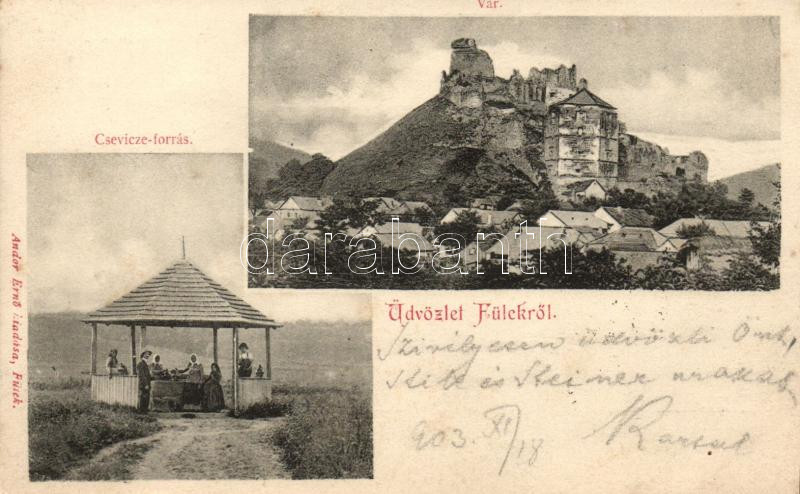 Vár.
Csevicze-forrás.
Andor Ernő kiadása, Fülek.
darabanth
Üdvözlet Fülekről.
Szivélyesen üdvözli Önt,
és Steiner urakat
903. XI/18